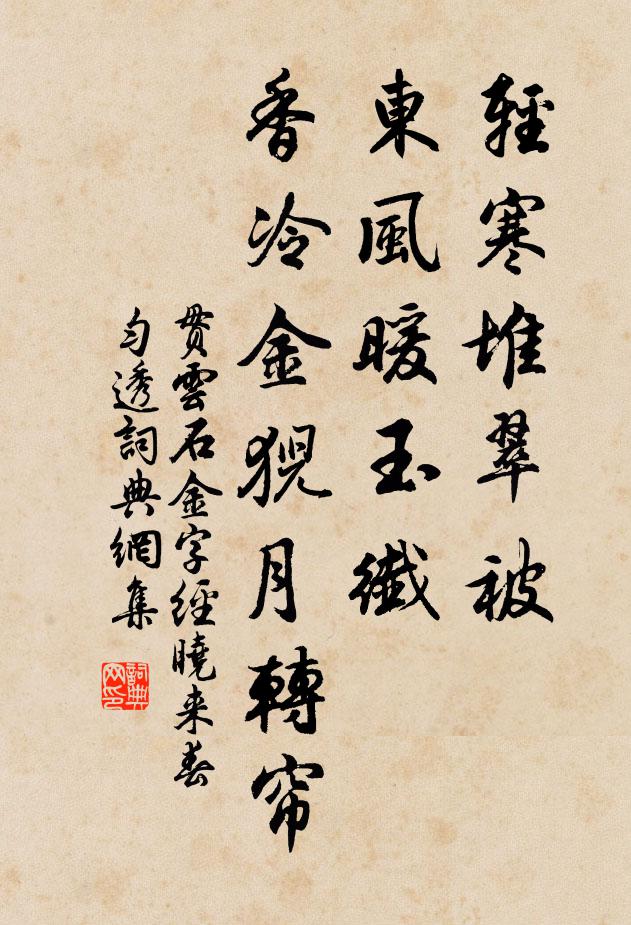 輕寒堆翠被
東風暖玉纖
香冷金猊月轉帘
貫雲石金字經曉来春
勻透詞典網集
詞典网印